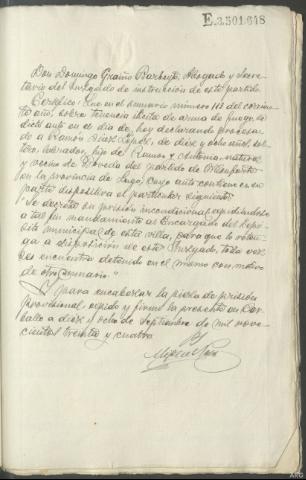 E.3.501.648
Don Domingo Guaiño Barbeyto, Abogado y Secre-
tario del Juzgado de instrucción de este partido
Certifico: Que en el sumario número 113 del corriente
año, sobre tenencia ilícita de arma de fuego, se
dictó auto en el día de hoy declarando procesa-
do a Ramón Díaz López, de diez y ocho años, sol-
tero, labrador, hijo de Ramón y Antonia, natural
y vecino de Doveda del partido de
en la provincia de Lugo, cuyo auto contiene en su
parte dispositiva el particular siguiente
"Se decreta su prisión incondicional expidiéndose
a tal fin mandamiento al Encargado del Depó-
sito municipal de esta villa, para que lo reten-
ga a disposición de este Juzgado, toda vez
se encuentra detenido en el mismo con motivo
de otro sumario."
Y para encabezar la pieza de prisión
provisional expido y firmo la presente en Car-
ballo a diez y ocho de Septiembre de mil nove-
cientos treinta y cuatro
ARG